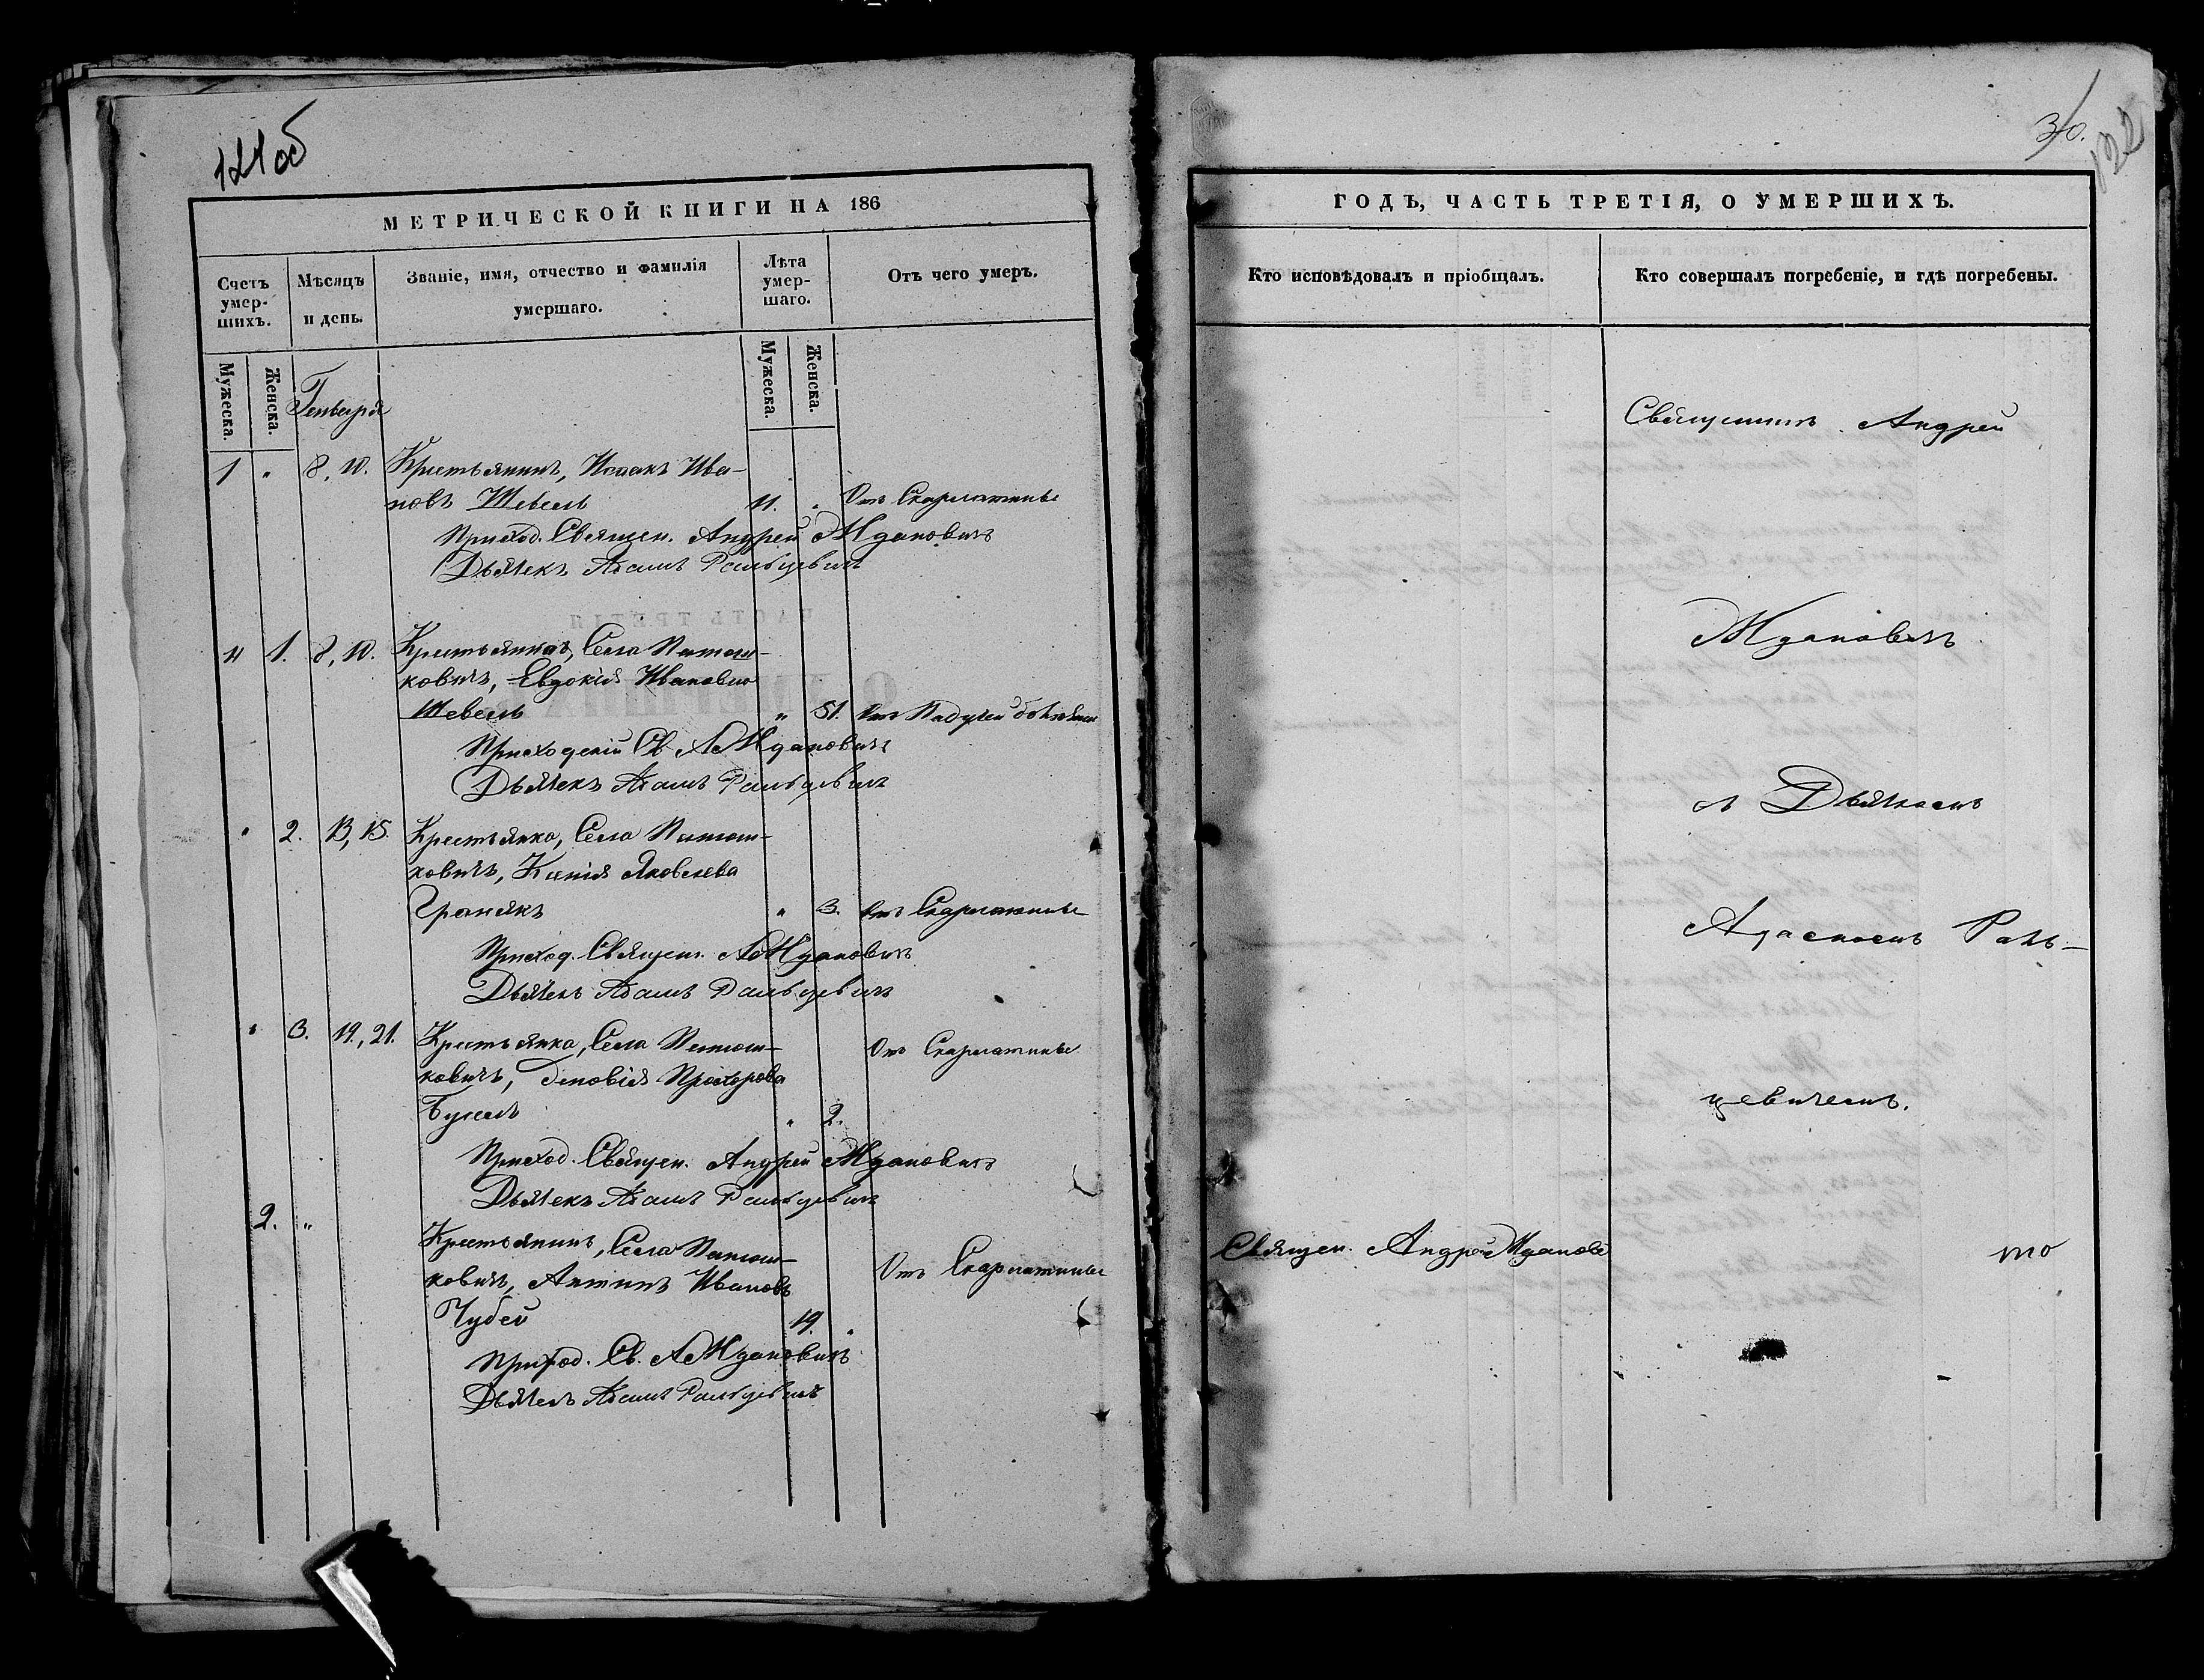 121об
МЕТРИЧЕСКОЙ КНИГИ НА 186
Счетъ умер-шихъ.
Мѣсяцъ и день.
Званіе, имя, отчество и фамилія умершаго.
Лѣта умер-шаго.
Отъ чего умеръ.
Мужеска.
Женска.
Генваря
Мужеска.
Женска.
1 " 8, 10. Крестьянинъ, Исаакъ Ива-
новъ Шевель 11. " Отъ Скарлатины
Приход. Священ. Андрей Ждановичъ
Дьячекъ Адамъ
" 1. 8, 10. Крестьянка, Села
ковичъ, Евдокія Иванова
Шевель " 51. Отъ Падучей болѣзни
Приходскій Св. А Ждановичъ
Дьячекъ Адамъ
" 2. 13, 15. Крестьянка, Села
ковичъ, Ксенія Яковлева
" 3. Отъ Скарлатины
Приход. Священ. А Ждановичъ
Дьячекъ Адамъ
" 3. 19, 21. Крестьянка, Села
Отъ Скарлатины
ковичъ, Зиновія Прохорова
" 2.
Приход. Священ. Андрей Ждановичъ
Дьячекъ Адамъ
2. " Крестьянинъ, Села
ковичъ, Ивановъ
Отъ Скарлатины
Чубей 19. "
Приход. Св. А Ждановичъ
Дьячекъ Адамъ
30.
122
ГОДЪ, ЧАСТЬ ТРЕТІЯ, О УМЕРШИХЪ.
Кто исповѣдовалъ и пріобщалъ.
Кто совершалъ погребеніе, и гдѣ погребены.
Священникъ Андрей
Ждановичъ
съ Дьячкомъ
цевичемъ.
Священ. Андрей Жданови
то